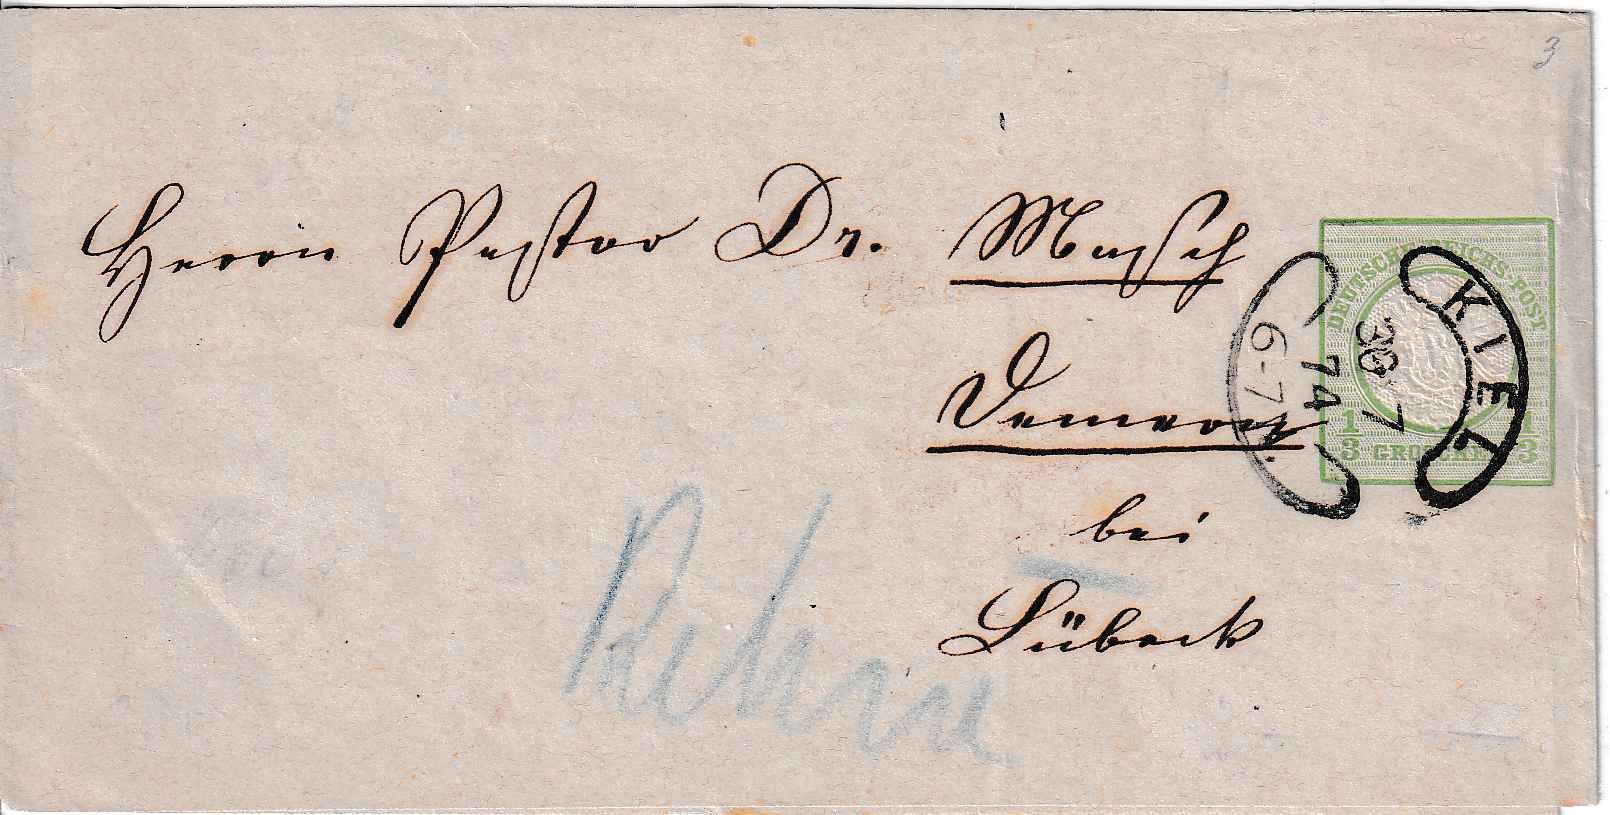 3
Herrn Pastor Dr. Masch
Demern
bei
Lübeck
Retour
DEUTSCHE REICHS-POST
1/3 GROSCHEN 1/3
KIEL
30 7
74
6-7